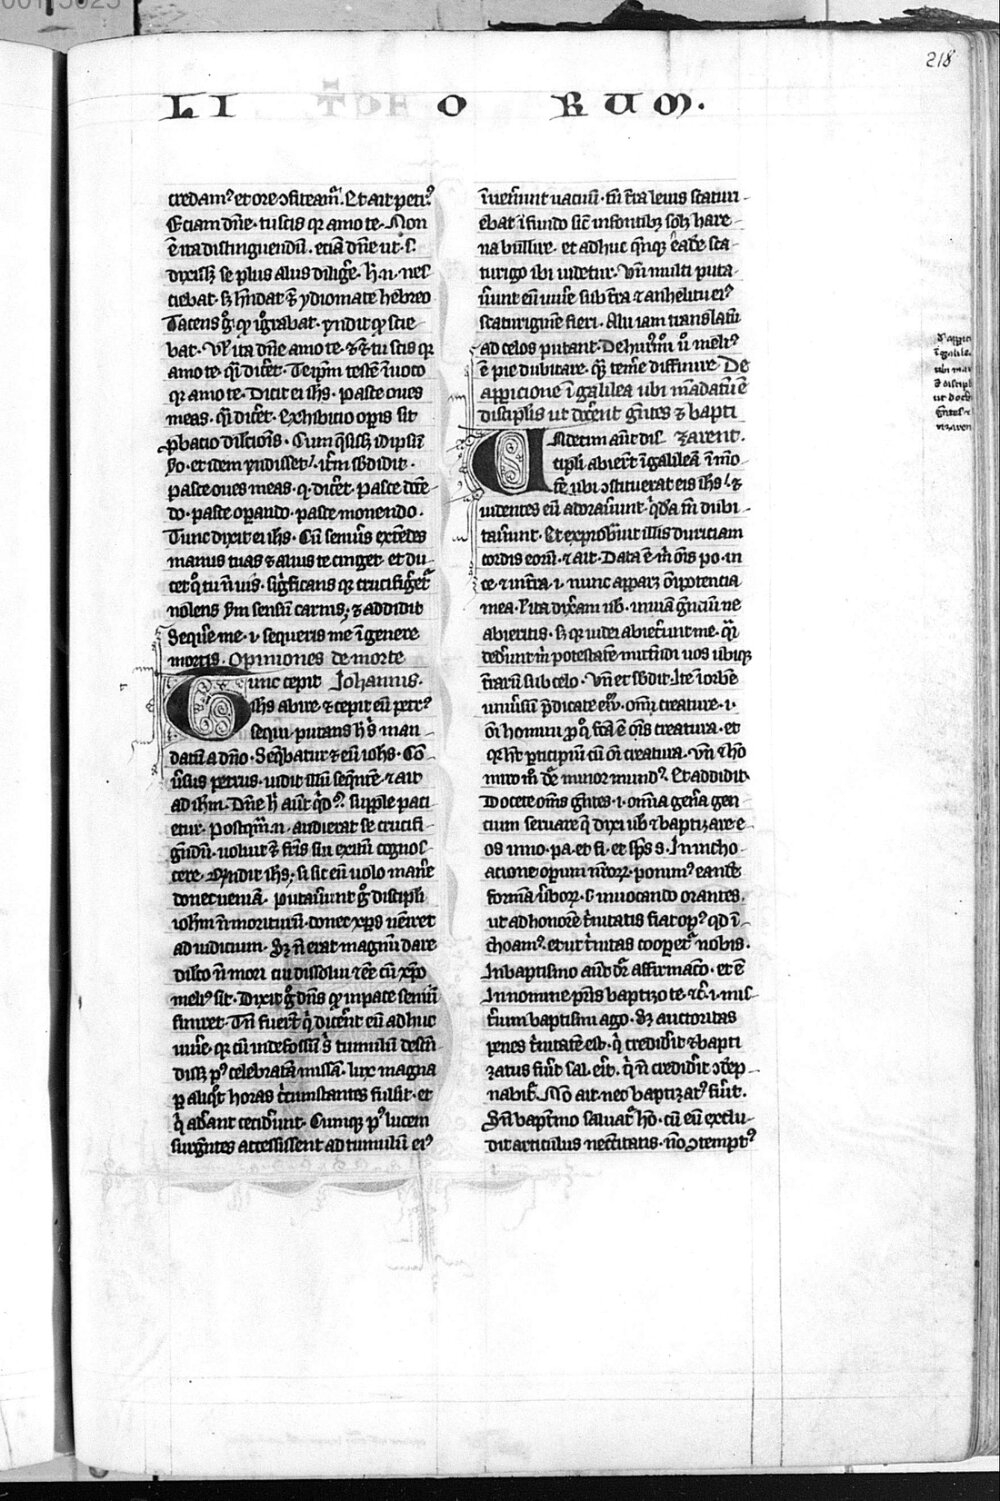 218
LI O RUM.
credamꝰ et ore ɔfiteamͬ. Et ait petꝰ.
Eciam dn̄e. tu scis qꝛ amo te. Non
ē ita distinguendū. eciā dn̄e ut. s.
dixiss; se plus aliis diliḡe. h̄. n̄. nes
ciebat. s; rn̄dat ī ydiomate hebreo
Tacens ḡ. qꝫ ig̅rabat. rn̄dit qꝫ scie
bat. Vl̄ ita dn̄e amo te. ⁊ tu scis qꝛ
amo te. qͣi dicet. Teip̄m testē īuoco
qꝛ amo te. Dicit ei ih̄s. pasce oues
meas. qͣi dicet. Exhibicio oꝑis sit
ꝓbacio dilc̄ionis. Cum q̄siss; idipsū
ꝰo. et idem rn̄disset. it̄m sb̄didit.
pasce oues meas. q. dicet. pasce doce
do. pasce oꝑando. pasce monendo.
Tunc dixit ei ih̄s. Cū senueris extēdes
manus tuas ⁊ alius te cinget. et du
cet qͦ tu nō uis. significans qꝛ crucifigeretͬ
nolens scd̄m sensū carnis. ⁊ addidit
Sequere me. i. sequeris me ī genere
mortis. Opiniones de morte
Tunc cepit Johannis.
ih̄s abire. ⁊ cepit eū petrꝰ
sequi. putans h̄ s; man
datū a dn̄o. Seqͣbatur ⁊ eū ioh̄s. Con
ūsus petrus. uidit illū seqͣntē. ⁊ ait
ad ih̄m. Dn̄e h̄ aūt qͥd. supple paci
etur. postqͣm. n. audierat se crucifi
gendū. uoluit ⁊ fr̄is sui exitū cognos
cere. Rn̄dit ih̄s. si sic eū uolo manere
donec ueniā. putauerunt ḡ discipli
ioh̄m nō moriturū. donec xp̄s ueniret
ad iudicium. S; nō erat magnū dare
disc̄o nō mori cui dissolui ⁊ esse cū xp̄o
meliꝰ sit. Dixit ḡ dn̄s qꝫ in pace seniū
finiret. Tn̄ fuerūt qͥ dicerent eū adhuc
uiuere. qꝛ cū in defossum s; tumulū descen
diss; pꝰ celebratā missā. lux magna
ꝑ aliqͣt horas cͥcumstantes fulsit. et
qͥ adant cecidūnt. Cumqꝫ pꝰ lucem
surgentes accessissent ad tumulū eiꝰ
īuenerunt uacuū. s; in t̄ra leuis scaturi
ebat ī fundo sic̄ in fontibꝫ solꝫ hare
na bullire. et adhuc qͥnqꝫ ēade sca
turigo ibi uidetur. Vn̄ multi puta
uerunt eū uiuere sub t̄ra ⁊ anhelitu eiꝰ
scaturiginē fieri. Alii iam translatū
ad celos putant. De huiusmodi uō meliꝰ
ē pie dubitare. qͣm temere diffinire. De
apꝑicione ī galilea ubi mādatū ē
disciplis ut docerent gentes ⁊ bapti
Undecim aūt dis zarent.
cipli abierūt ī galileā ī mō
tē ubi ɔstituerat eis ih̄s. ⁊
uidentes eū adorauerunt. qͥdā tn̄ dubi
tauerunt. Et exprobrauit illis duriciam
cordis eorū. ⁊ ait. Data ē m̄ om̄s po. in
ce. ⁊ in t̄ra. i. nunc apparꝫ om̄ipotencia
mea. Vl̄ ita dixeram uob. in uiā genciū ne
abieritis. s; qꝛ iudei abiecerunt me. qͣi
dederunt m̄ potestatē mittendi uos ubiqꝫ
terrarū sub celo. Vn̄ et sb̄dit. Ite ī orbē
uniūsū p̄dicate ewͫ. omͥ creature. i.
om̄i homini. ꝓ qͦ facta ē om̄is creatura. et
qꝛ h̄t ꝑticipiū cū om̄i creatura. Vn̄ ⁊ hō
micro m̄. dr̄ minor mundꝰ. Et addidit.
Docete om̄s gentes. i. om̄ia genera gen
cium seruare q̄ dixi uob. ⁊ baptizare e
os in no. pa. et fi. et sp̄s s. In incho
acione operum nr̄orꝝ. ponimꝰ eandē
formā ūborꝝ. s. inuocando orantes.
ut ad honorē t̄nitatis fiat opꝰ. qd ī
choamꝰ. et ut t̄nitas cooperetͬ nobis.
In baptismo aūt dr̄ affirmatio. et ē
In nomine pr̄is baptizo te. ⁊c. i. mis
terium baptismi ago. s; auctoritas
penes t̄nitatē est. qͥ credidit ⁊ bapti
zatus fuerit sal. erit. qͥ nō credidit ɔdep
nabitͬ. Nō ait. nec baptizatꝰ fuerit.
Sn̄ baptismo saluatͬ hō. cū eū exclu
dit articulus necessitatis. nō ɔtemptꝰ